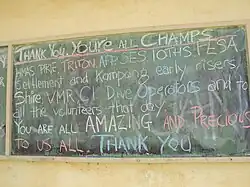 THANK YOU, YOU'RE ALL CHAMPS
HMAS PIRIE TRITON AFP SES IOTHS FESA
Settlement and Kampong early risers
Shire VMR CI Dive Operators and to
all the volunteers that day
YOU ARE ALL AMAZING AND PRECIOUS
TO US ALL THANK YOU